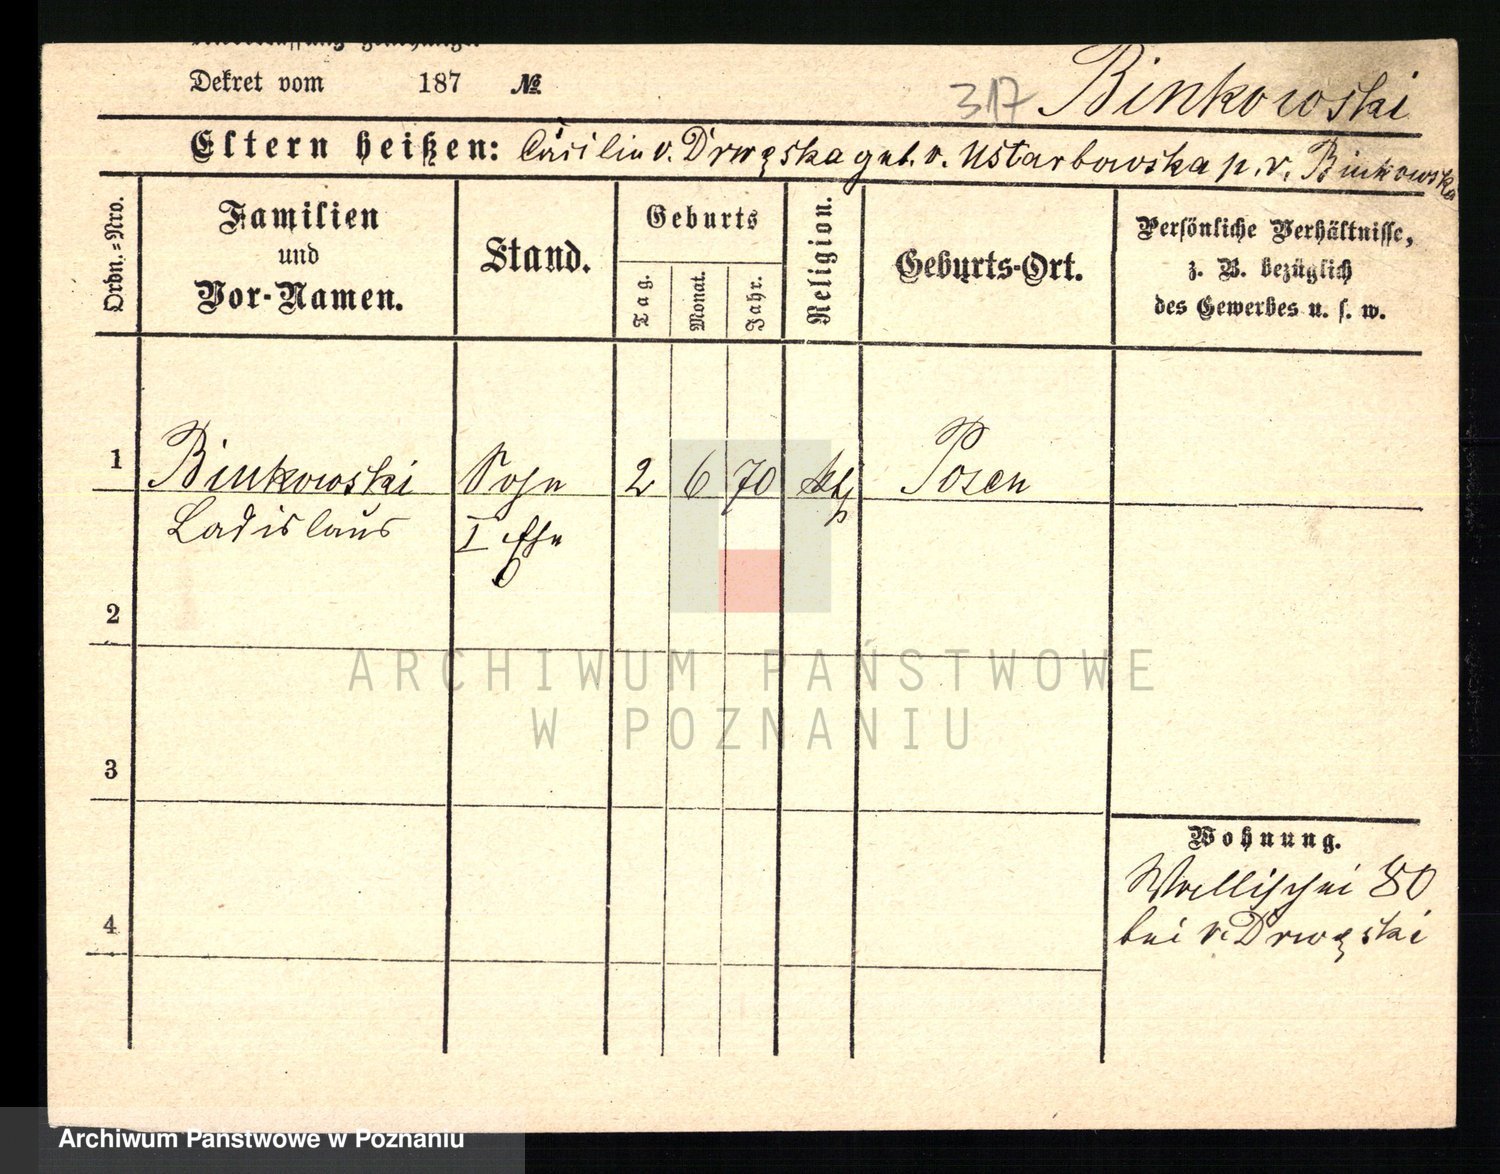 Dekret vom 187 №
317 Binkowski
Eltern heißen: Cäcilie v. Drwęska geb. v. Ustarbowska p. v. Binkowska
Ordn.=Nro.
Familien
und
Vor-Namen.
Stand.
Geburts
Tag.
Monat.
Jahr.
Religion.
Geburts-Ort.
Persönliche Verhältnisse,
z. B. bezüglich
des Gewerbes u. s. w.
1 Binkowski Sohn 2 6 70 kth Posen
Ladislaus I Ehe
2
3
4
Wohnung.
Wallischei 80
bei v. Drwęski
ARCHIWUM PAŃSTWOWE
W POZNANIU
Archiwum Państwowe w Poznaniu